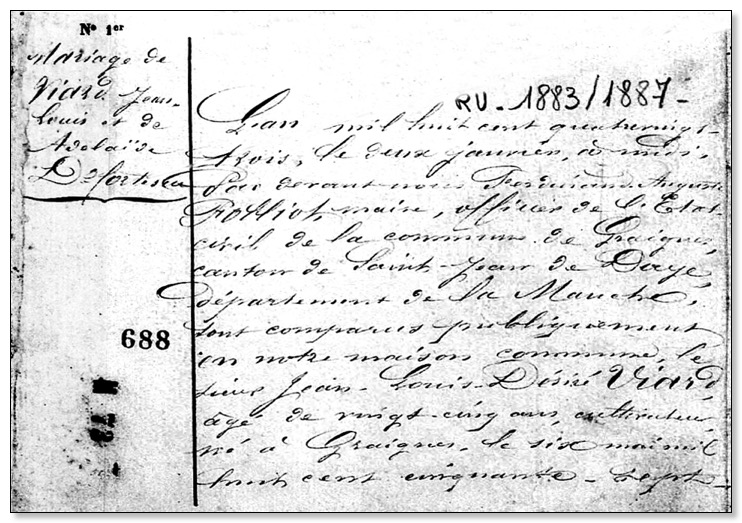 Nº 1er
Mariage de
Viard Jean-
Louis et de
Adelaïde
RU - 1883/1887 -
L'an mil huit cent quatrevingt-
trois, le deux janvier, à midi.
Par devant nous Ferdinand Auguste
maire, officier de l'Etat-
civil de la commune de Graignes,
canton de Saint-Jean de Daye,
département de la Manche,
sont comparus publiquement
en notre maison commune, le
sieur Jean-Louis-Désiré Viard,
âgé de vingt-cinq ans, cultivateur,
né à Graignes, le six mai mil
huit cent cinquante-sept-
688